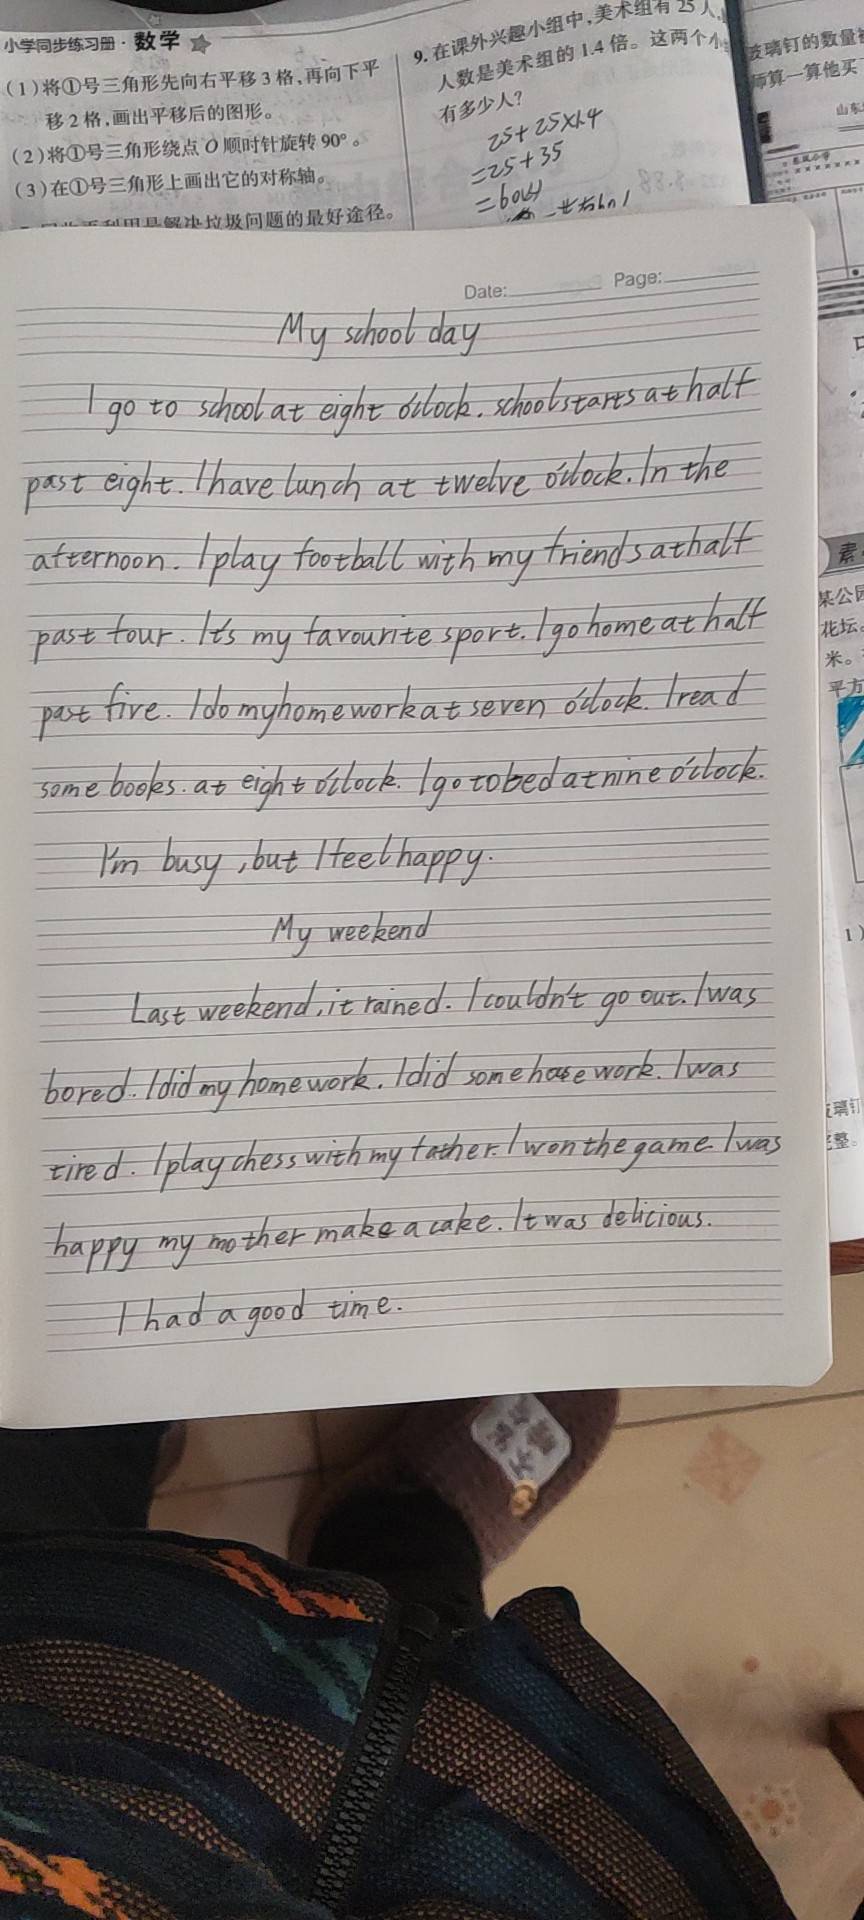 小学同步练习册·数学
(1)将①号三角形先向右平移3格,再向下平
移2格,画出平移后的图形。
(2)将①号三角形绕点O顺时针旋转90°。
(3)在①号三角形上画出它的对称轴。
解决垃圾问题的最好途径。
9.在课外兴趣小组中,美术组有25人,
人数是美术组的1.4倍。这两个小
有多少人?
25+25×1.4
=25+35
=60(人)
玻璃钉的数量
师算一算他买
山东
Date: Page:
My school day
I go to school at eight o'clock. school starts at half
past eight. I have lunch at twelve o'clock. In the
afternoon. I play football with my friends at half
past four. It's my favourite sport. I go home at half
past five. I do my homework at seven o'clock. I read
some books. at eight o'clock. I go to bed at nine o'clock.
I'm busy, but I feel happy.
My weekend
Last weekend, it rained. I couldn't go out. I was
bored. I did my homework. I did some house work. I was
tired. I play chess with my father. I won the game. I was
happy my mother make a cake. It was delicious.
I had a good time.
素
某公园
花坛。
米。
平方
1)
玻璃钉
整。